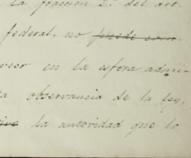 la fraccion 2ª del art.
federal, no puede com
veer en la esfera admi
a observancia de la ley,
la autoridad que lo